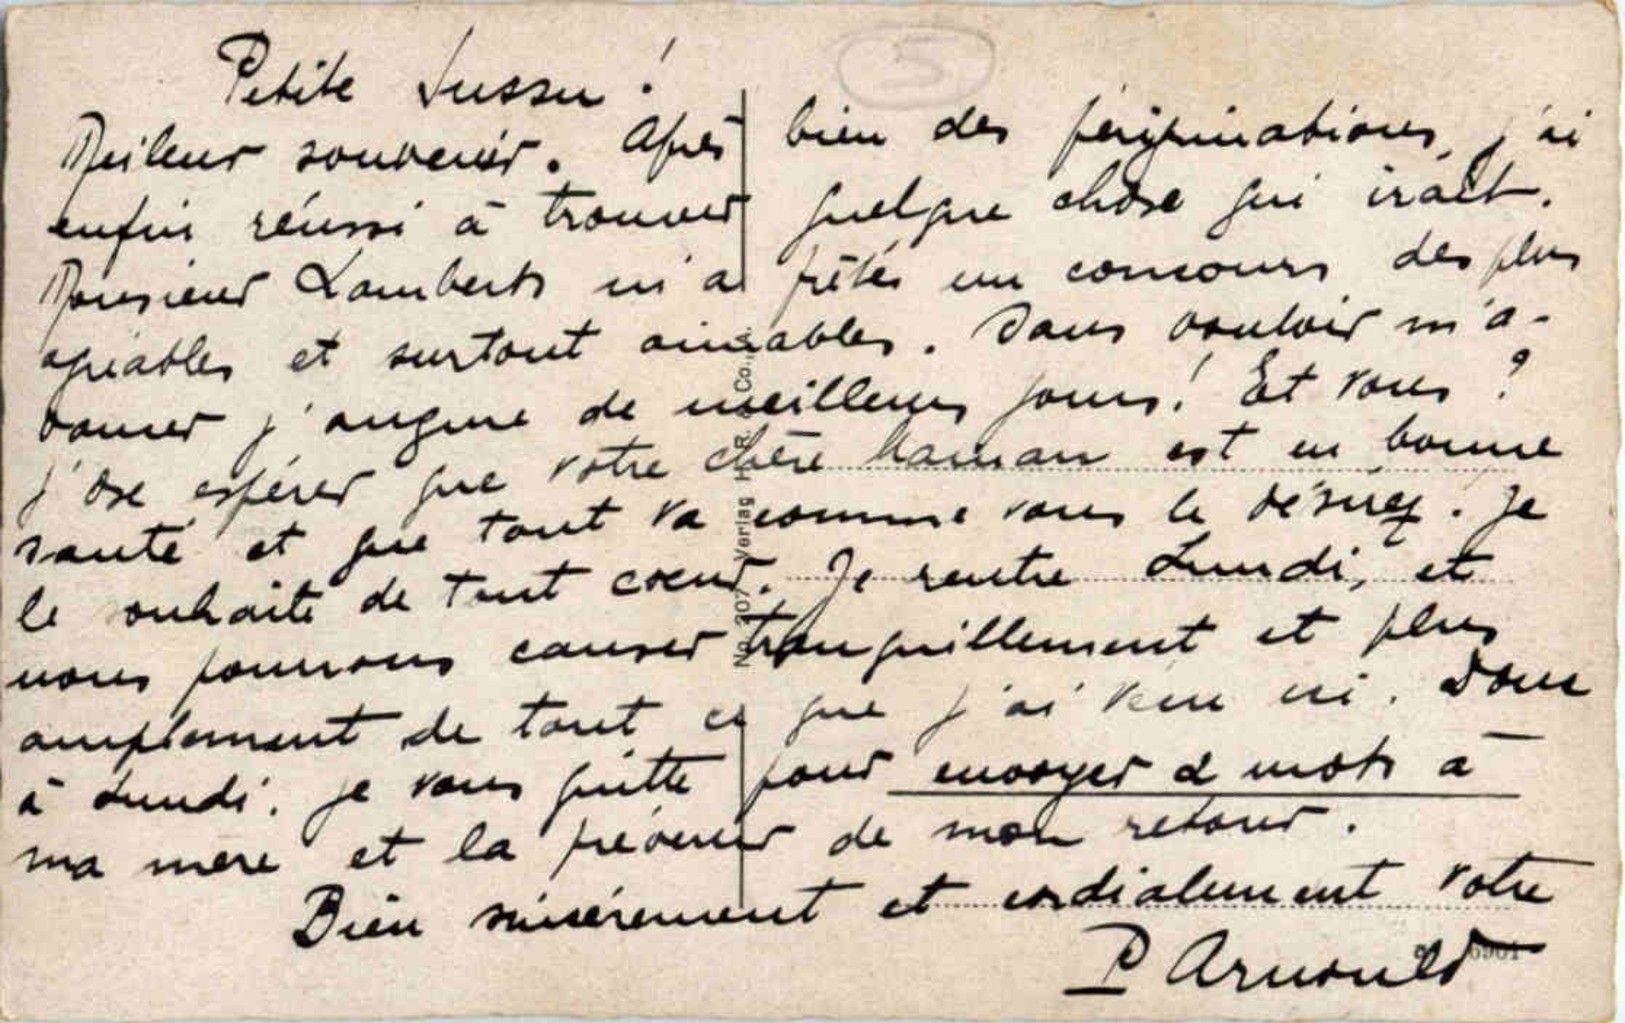 5
Petite Sussu !
Meileur souvenir. Après bien des périgrinations, j'ai
enfin réussi à trouver quelque chose qui irait.
Monsieur Lamberts m'a prêtés un concours des plus
agréables et surtout aimables. Sans vouloir m'a-
vancer j'augure de meilleurs jours ! Et vous ?
J'ose espérer que votre chère Maman est en bonne
santé et que tout va comme vous le désirez. Je
le souhaite de tout coeur. Je rentre Lundi, et
nous pourrons causer tranquillement et plus
amplement de tout ce que j'ai vu ici. Donc
à Lundi. Je vous quitte pour envoyer 2 mots à
ma mère et la prévenir de mon retour.
Bien sincèrement et cordialement votre
P Arnould
Verlag H. R. Co.